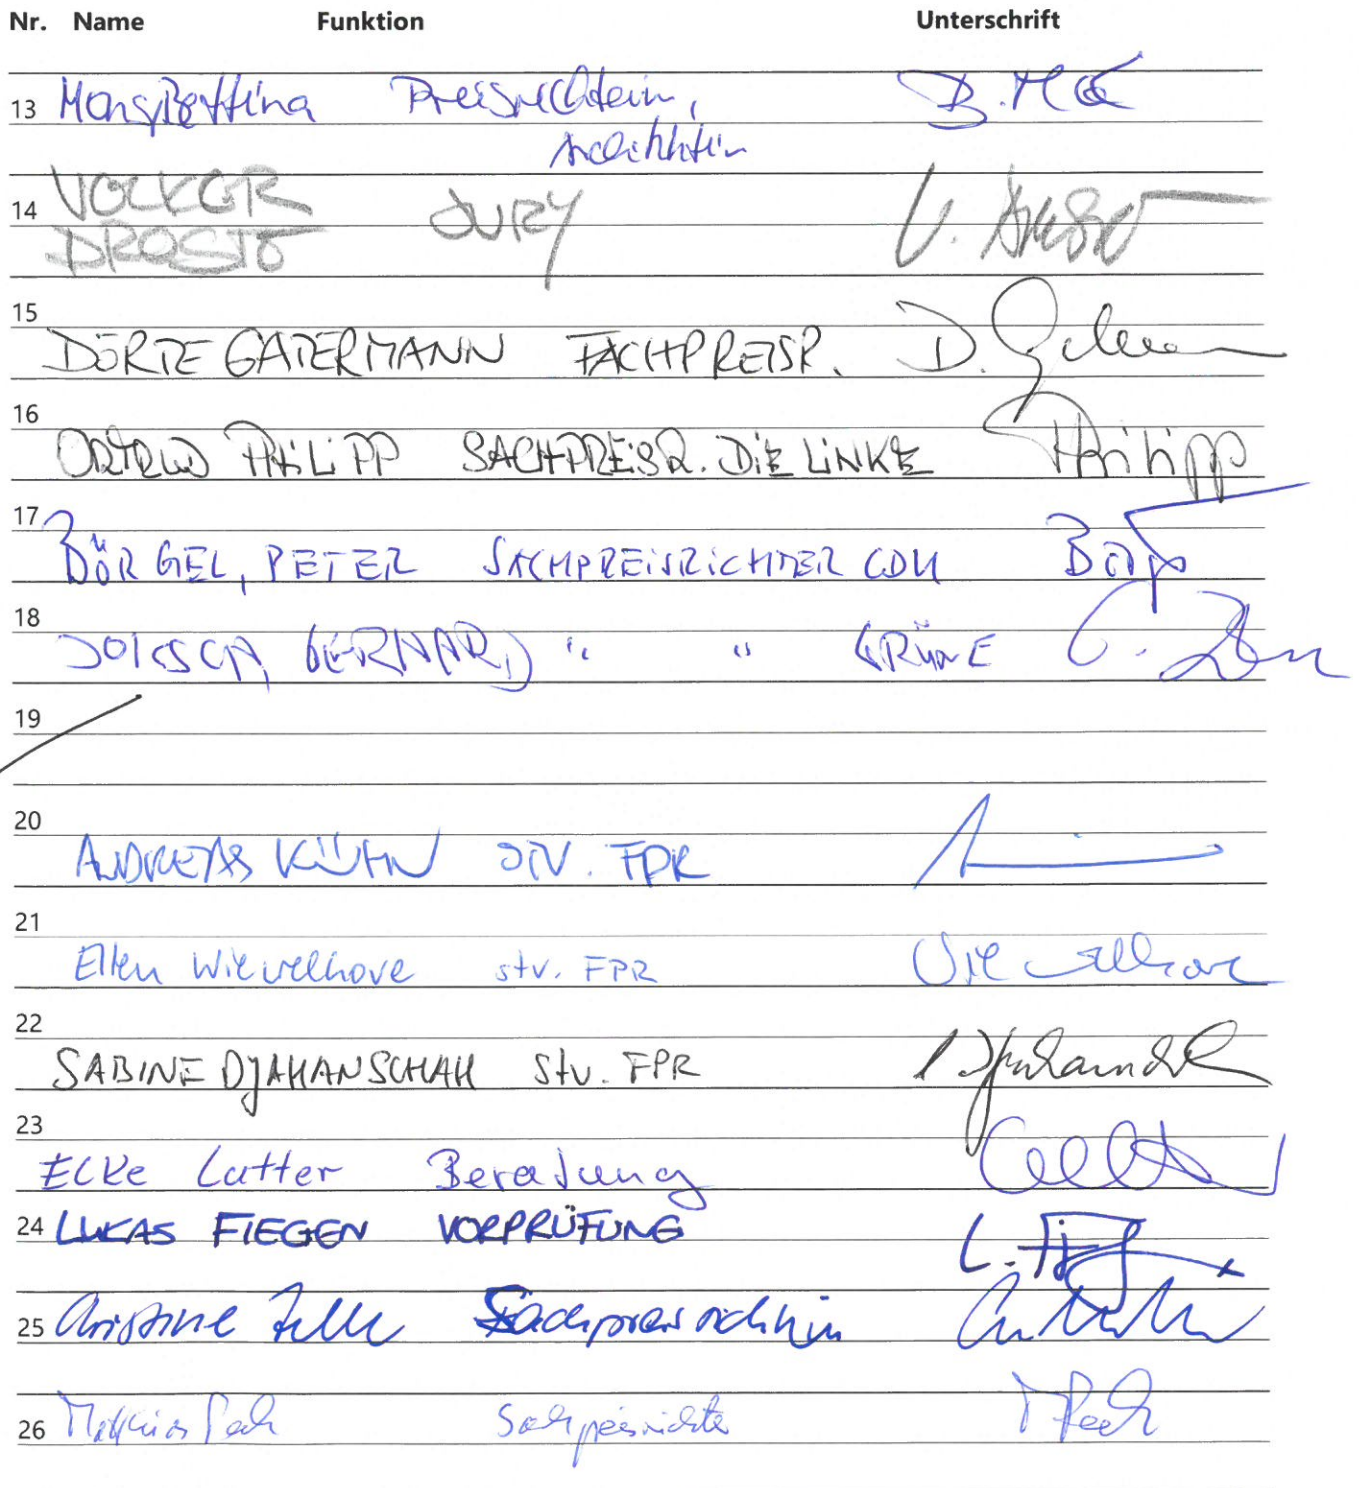 Nr. Name Funktion Unterschrift
13 Bettina Preisrichterin,
Architektin
14 VOLKER
DROSTE JURY V. Droste
15 DÖRTE GATERMANN FACHPREISR. D.
16 ORTRUD PHILIPP SACHPREISR. DIE LINKE Philipp
17 BÖRGEL, PETER SACHPREISRICHTER CDU
18 GERNARD " " GRÜNE
19
20 ANDREAS KÜHN STV. FPR
21 Ellen Wievelhove stv. FPR Wievelhove
22 SABINE DJAHANSCHAH Stv. FPR
23 ECKE Latter Beratung
24 LUKAS FIEGEN VORPRÜFUNG L.
25 Christine Sachpreisrichterin
26 Matthias Pech Sachpreisrichter MPech